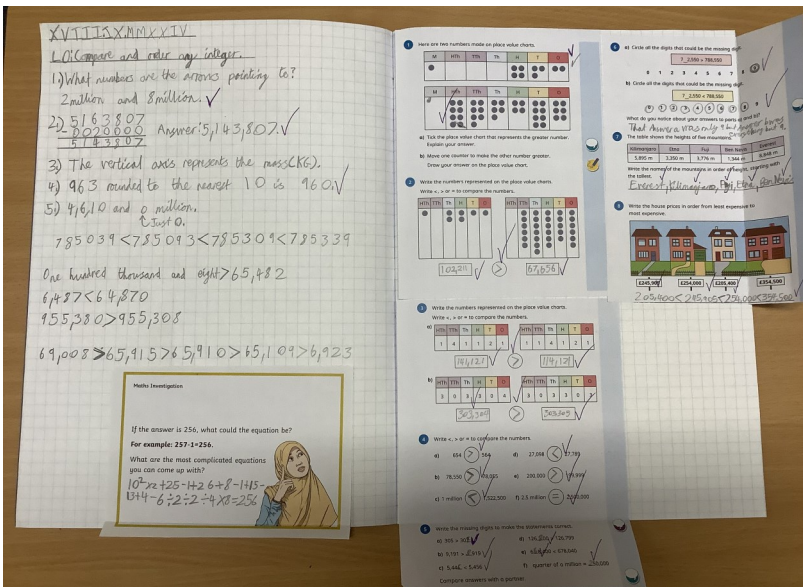 XVIII.IX.MMXXIV
LO:Compare and order any integer.
1.)What numbers are the arrows pointing to?
2million and 8million.
2.) 5163807
- 0020000
5143807
Answer:5,143,807.
3.) The vertical axis represents the mass(KG).
4.) 963 rounded to the nearest 10 is 960.
5.) 4,6,10 and 0 million.
Just 0.
785039<785093<785309<785339
One hundred thousand and eight>65,482
6,487<64,870
955,380>955,308
69,008>65,915>65,910>65,109>6,923
Maths Investigation
If the answer is 256, what could the equation be?
For example: 257-1=256.
What are the most complicated equations
you can come up with?
1 Here are two numbers made on place value charts.
M HTh TTh Th H T O
M HTh TTh Th H T O
a) Tick the place value chart that represents the greater number.
Explain your answer.
b) Move one counter to make the other number greater.
Draw your answer on the place value chart.
2 Write the numbers represented on the place value charts.
Write <, > or = to compare the numbers.
HTh TTh Th H T O
HTh TTh Th H T O
102,211 > 67,656
3 Write the numbers represented on the place value charts.
Write <, > or = to compare the numbers.
a)
HTh TTh Th H T O
HTh TTh Th H T O
1 4 1 1 2 1
1 1 4 1 2 1
141,121 > 114,121
b)
HTh TTh Th H T O
HTh TTh Th H T O
4 Write <, > or = to compare the numbers.
a) 654 > 564
d) 27,098 <
b) 78,550 >
e) 200,000 >
c) 1 million <
f) 2.5 million =
5 Write the missing digits to make the statements correct.
Compare answers with a partner.
6 a) Circle all the digits that could be the missing digit.
7_2,550 > 788,550
0 1 2 3 4 5 6 7 8 9
b) Circle all the digits that could be the missing digit.
7_2,550 < 788,550
0 1 2 3 4 5 6 7 8 9
What do you notice about your answers to parts a) and b)?
7 The table shows the heights of five mountains.
Kilimanjaro Etna Fuji Ben Nevis Everest
5,895 m 3,350 m 3,776 m 1,344 m 8,848 m
Write the names of the mountains in order of height, starting with
the tallest.
Everest, Kilimanjaro, Fuji, Etna, Ben Nevis
8 Write the house prices in order from least expensive to
most expensive.
£245,900 £254,000 £205,400 £354,500